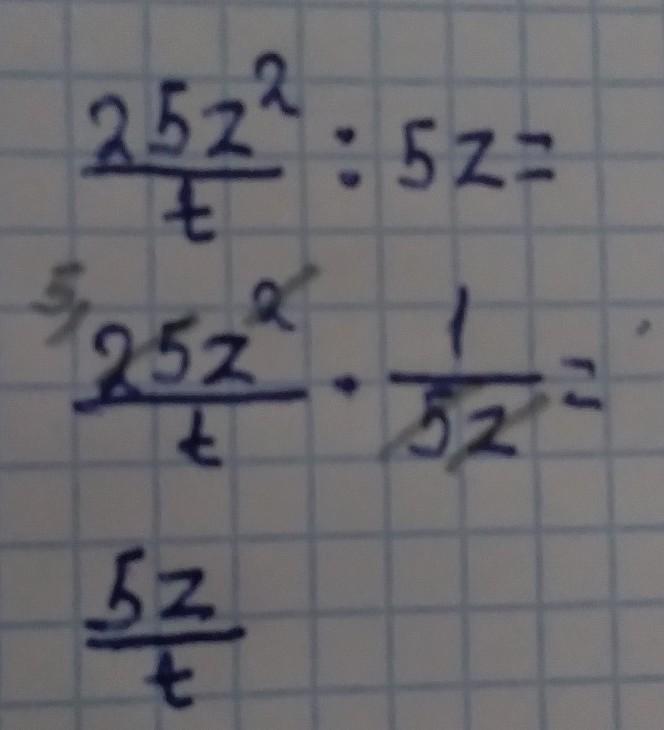 25z²/t : 5z =
5, 25z²/t · 1/5z =
5z/t